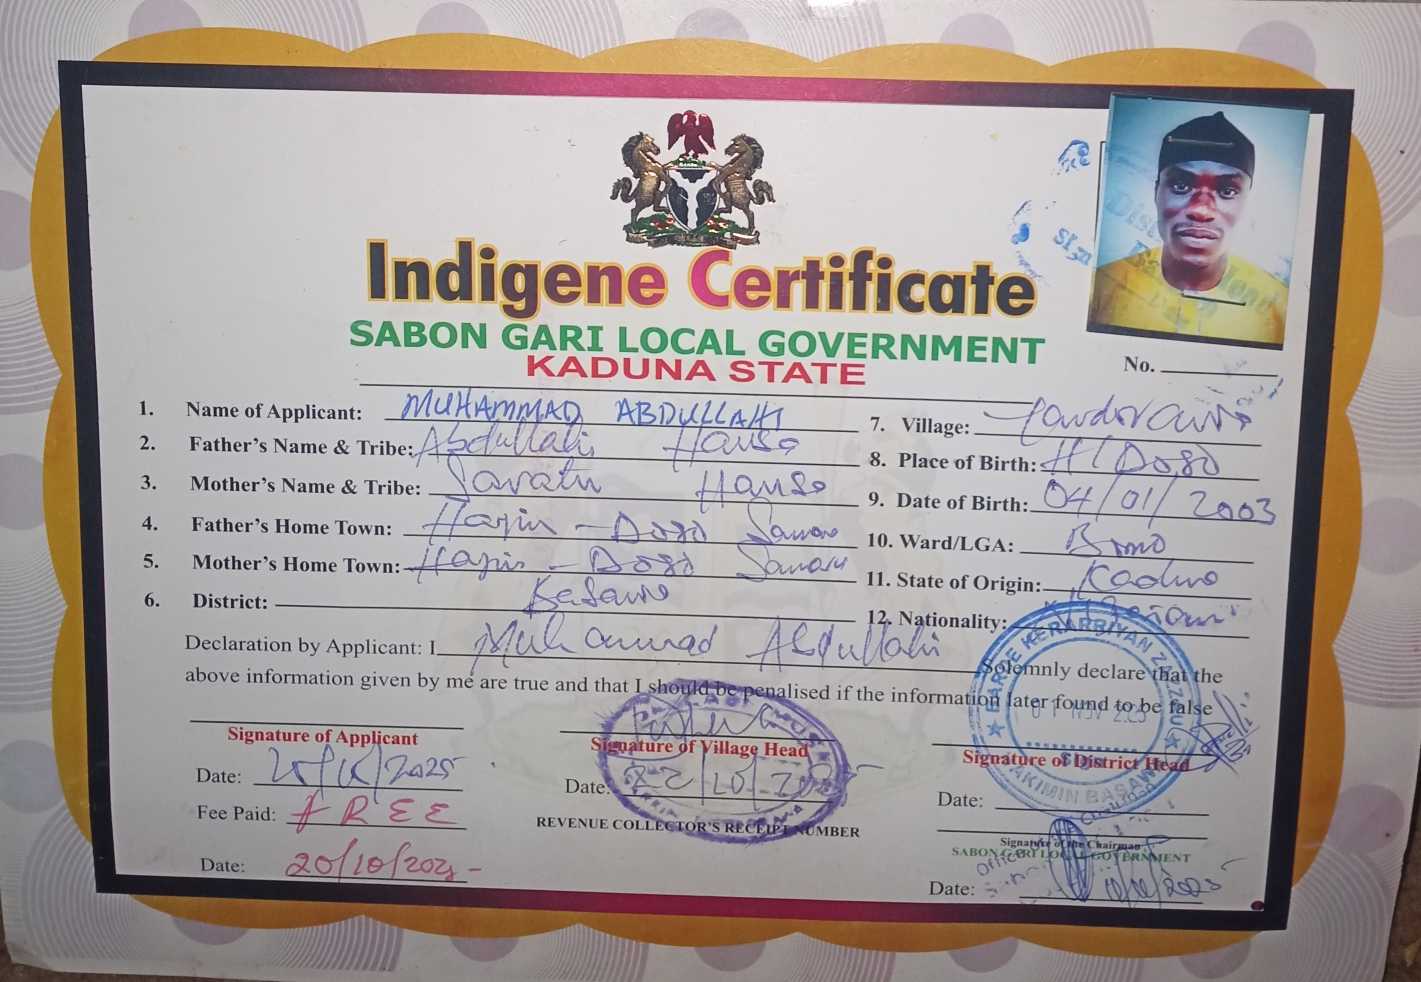 Indigene Certificate
SABON GARI LOCAL GOVERNMENT
KADUNA STATE
No.
1. Name of Applicant: MUHAMMAD ABDULLAHI
2. Father's Name & Tribe: Abdullahi Hausa
3. Mother's Name & Tribe: Hausa
4. Father's Home Town: Hayin - Dogo Samaru
5. Mother's Home Town: Hayin - Dogo Samaru
6. District: Basawa
7. Village:
8. Place of Birth: H/Dogo
9. Date of Birth: 04/01/2003
10. Ward/LGA: Bomo
11. State of Origin: Kaduna
12. Nationality:
Declaration by Applicant: I Muhammad Abdullahi Solemnly declare that the
above information given by me are true and that I should be penalised if the information later found to be false
Signature of Applicant
Date:
Fee Paid: FREE
Date: 20/10/2025
Signature of Village Head
Date: 22/10/2025
REVENUE COLLECTOR'S RECEIPT NUMBER
Signature of District Head
Date:
Signature of the Chairman
SABON GARI LOCAL GOVERNMENT
Date:
KERARBIYAN ZAZZAU
HAKIMIN BASAWA